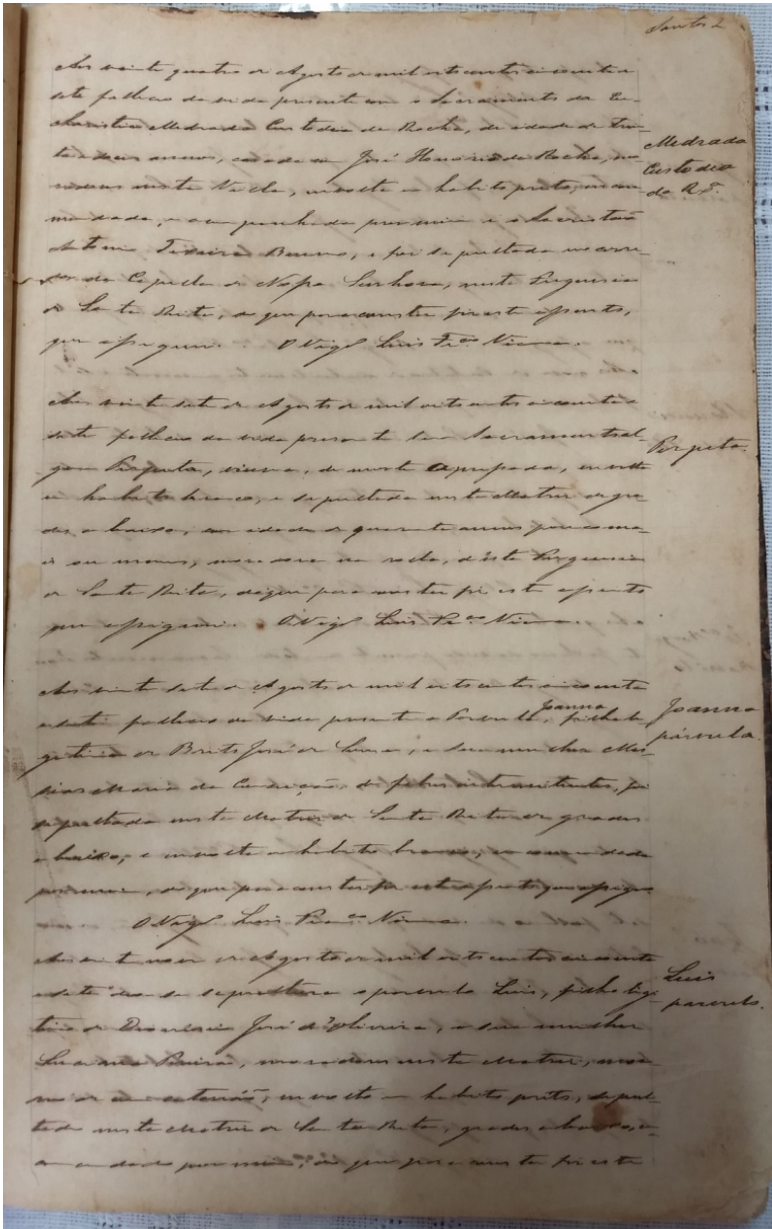 Santos 2
Aos vinte quatro de Agosto de mil oitocentos cincoenta e
sete falleceo da vida presente com o Sacramento da Eu-
charistia Medrada Custodia da Rocha, de idade de trin-
ta e dous annos, casada com José Honorio da Rocha, mo-
radores nesta Villa, involta em habito preto, encom-
mendada, e acompanhada por mim e o Sacristaõ
Antonio Teixeira Bueno, e foi sepultada no corre-
dor da Capella de Nossa Senhora, nesta Freguesia
de Santa Rita, de que para constar fiz este assento,
que assignei. O Vigº Luis Frco Vianna.
Medrada
Custodia
da Rª.
Aos vinte sete de Agosto de mil oitocentos cincoenta e
sete falleceo da vida presente sem Sacramento al-
gum Perpeta, viuva, de morte apressada, involta
em habito branco, e sepultada nesta Matriz de gra-
des a baixo, com idade de quarenta annos pouco ma-
is ou menos, moradora na roça, d'esta Freguesia
de Santa Rita, de que para constar fiz este assento
que assignei. O Vigº Luis Frco Vianna.
Perpeta.
Aos vinte sete de Agosto de mil oitocentos cincoenta
e sete falleceo da vida presente a Parvula Joanna, filha le-
gitima de Brito José de Lima, e sua mulher Mes-
sias Maria da Conceição, de febres intermitentes, foi
sepultada nesta Matriz de Santa Rita de grades
a baixo, e involta em habito branco, encommendada
por mim, de que para constar fiz este assento que assignei
O Vigº Luis Frco Vianna.
Joanna
párvula.
Aos vinte nove de Agosto de mil oitocentos cincoenta
e sete deo-se sepultura o parvulo Luis, filho legi-
timo de José d'Oliveira, e sua mulher
moradores nesta Matriz,
involto em habito preto, sepul-
tado nesta Matriz de Santa Rita, grades a baixo, en-
commendado por mim, de que para constar fiz este
Luis
parvulo.